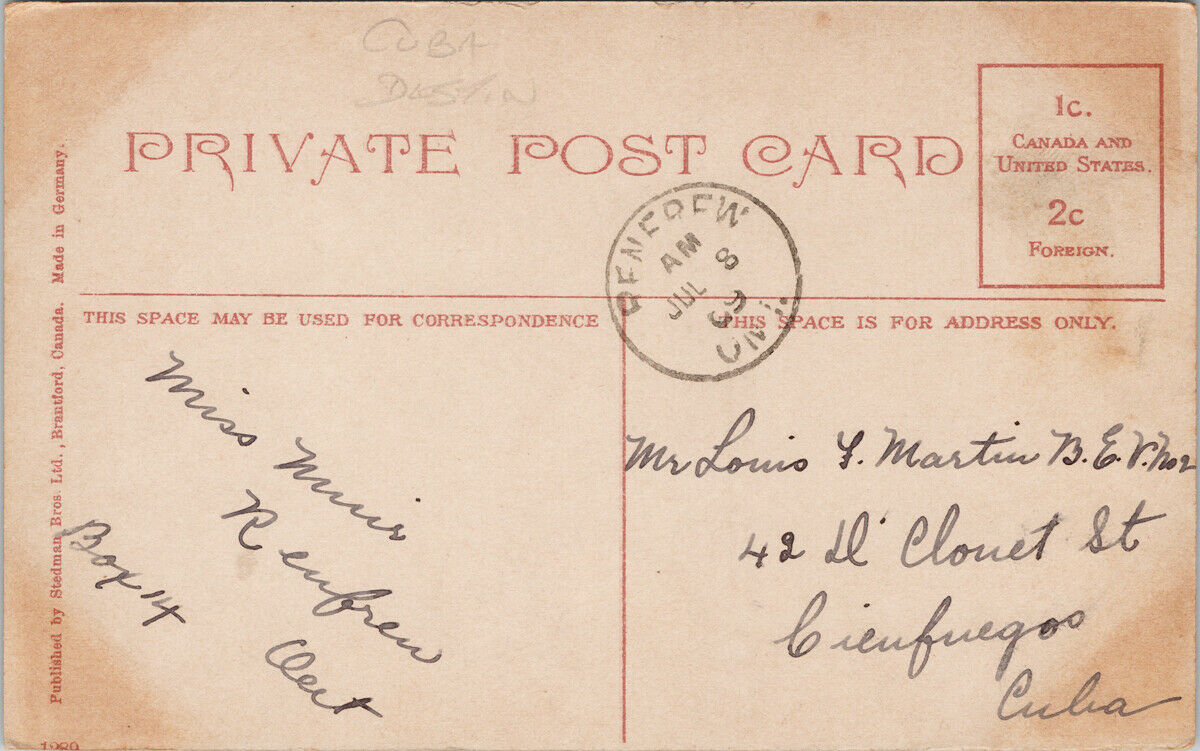 CUBA
DESTIN
PRIVATE POST CARD
1c.
CANADA AND
UNITED STATES.
2c
FOREIGN.
RENFREW
AM
8
JUL
ONT.
THIS SPACE MAY BE USED FOR CORRESPONDENCE
THIS SPACE IS FOR ADDRESS ONLY.
Miss Muir
Renfrew
Ont
Box 14
Mr Louis F. Martin B.E.V. No 2
42 D' Clouet St
Cienfuegos
Cuba
Published by Stedman Bros. Ltd., Brantford, Canada. Made in Germany.